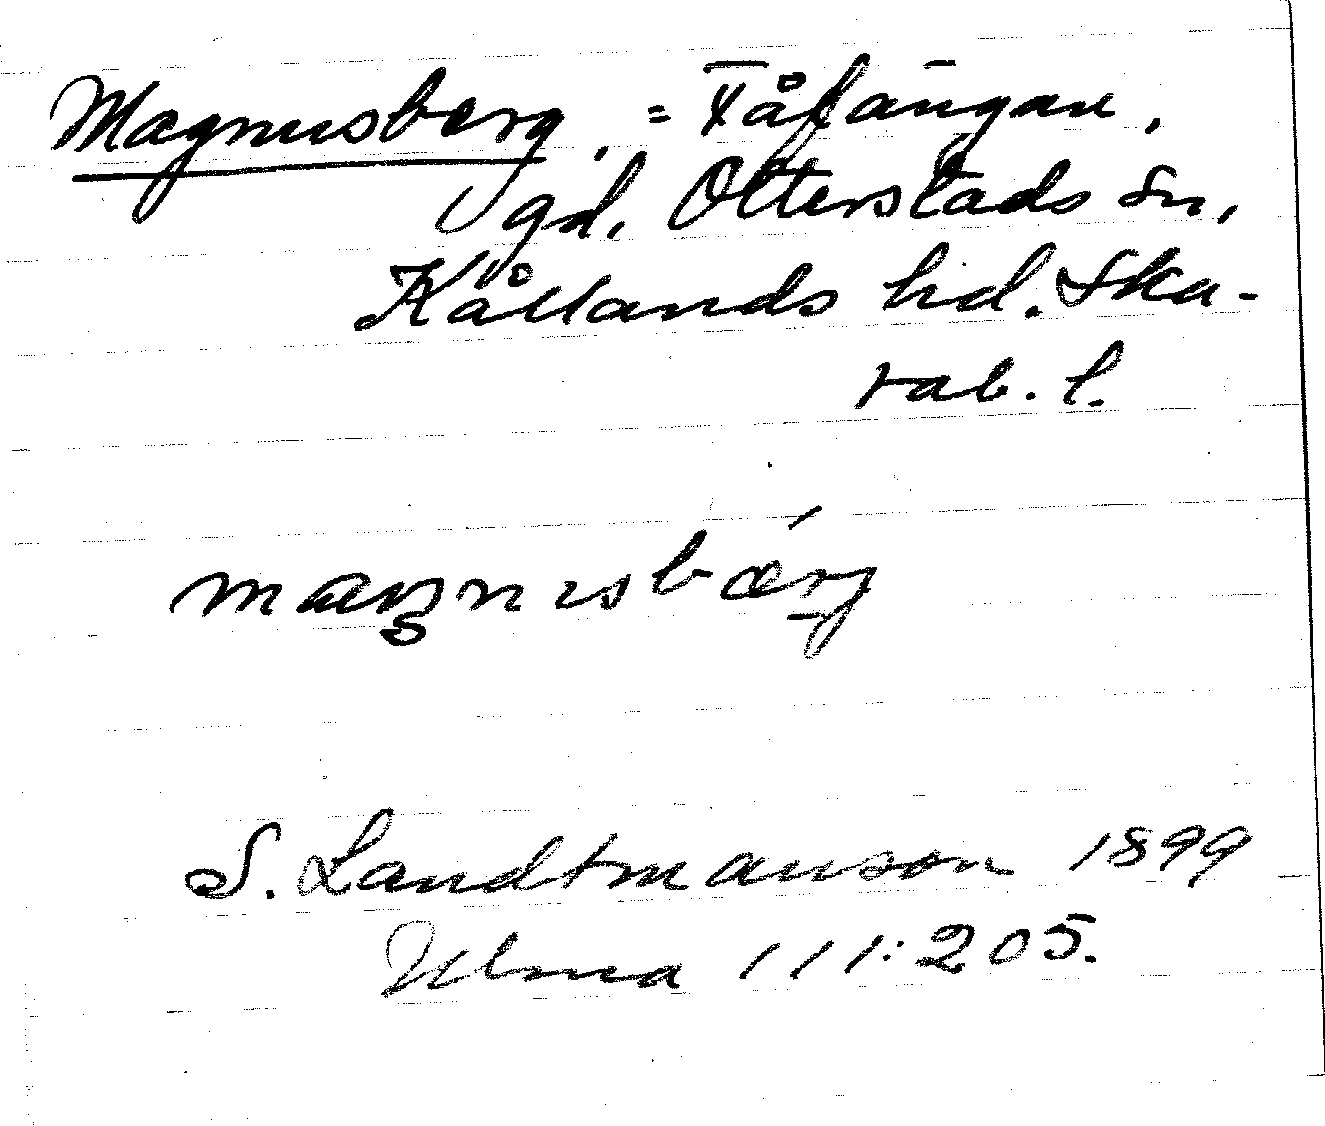 Magnusberg, = Fåfängan,
Vgd. Otterstads sn,
Kållands hd. Ska-
rab. l.
magnusbærg
S. Landtmanson 1899
Ulma 111:205.